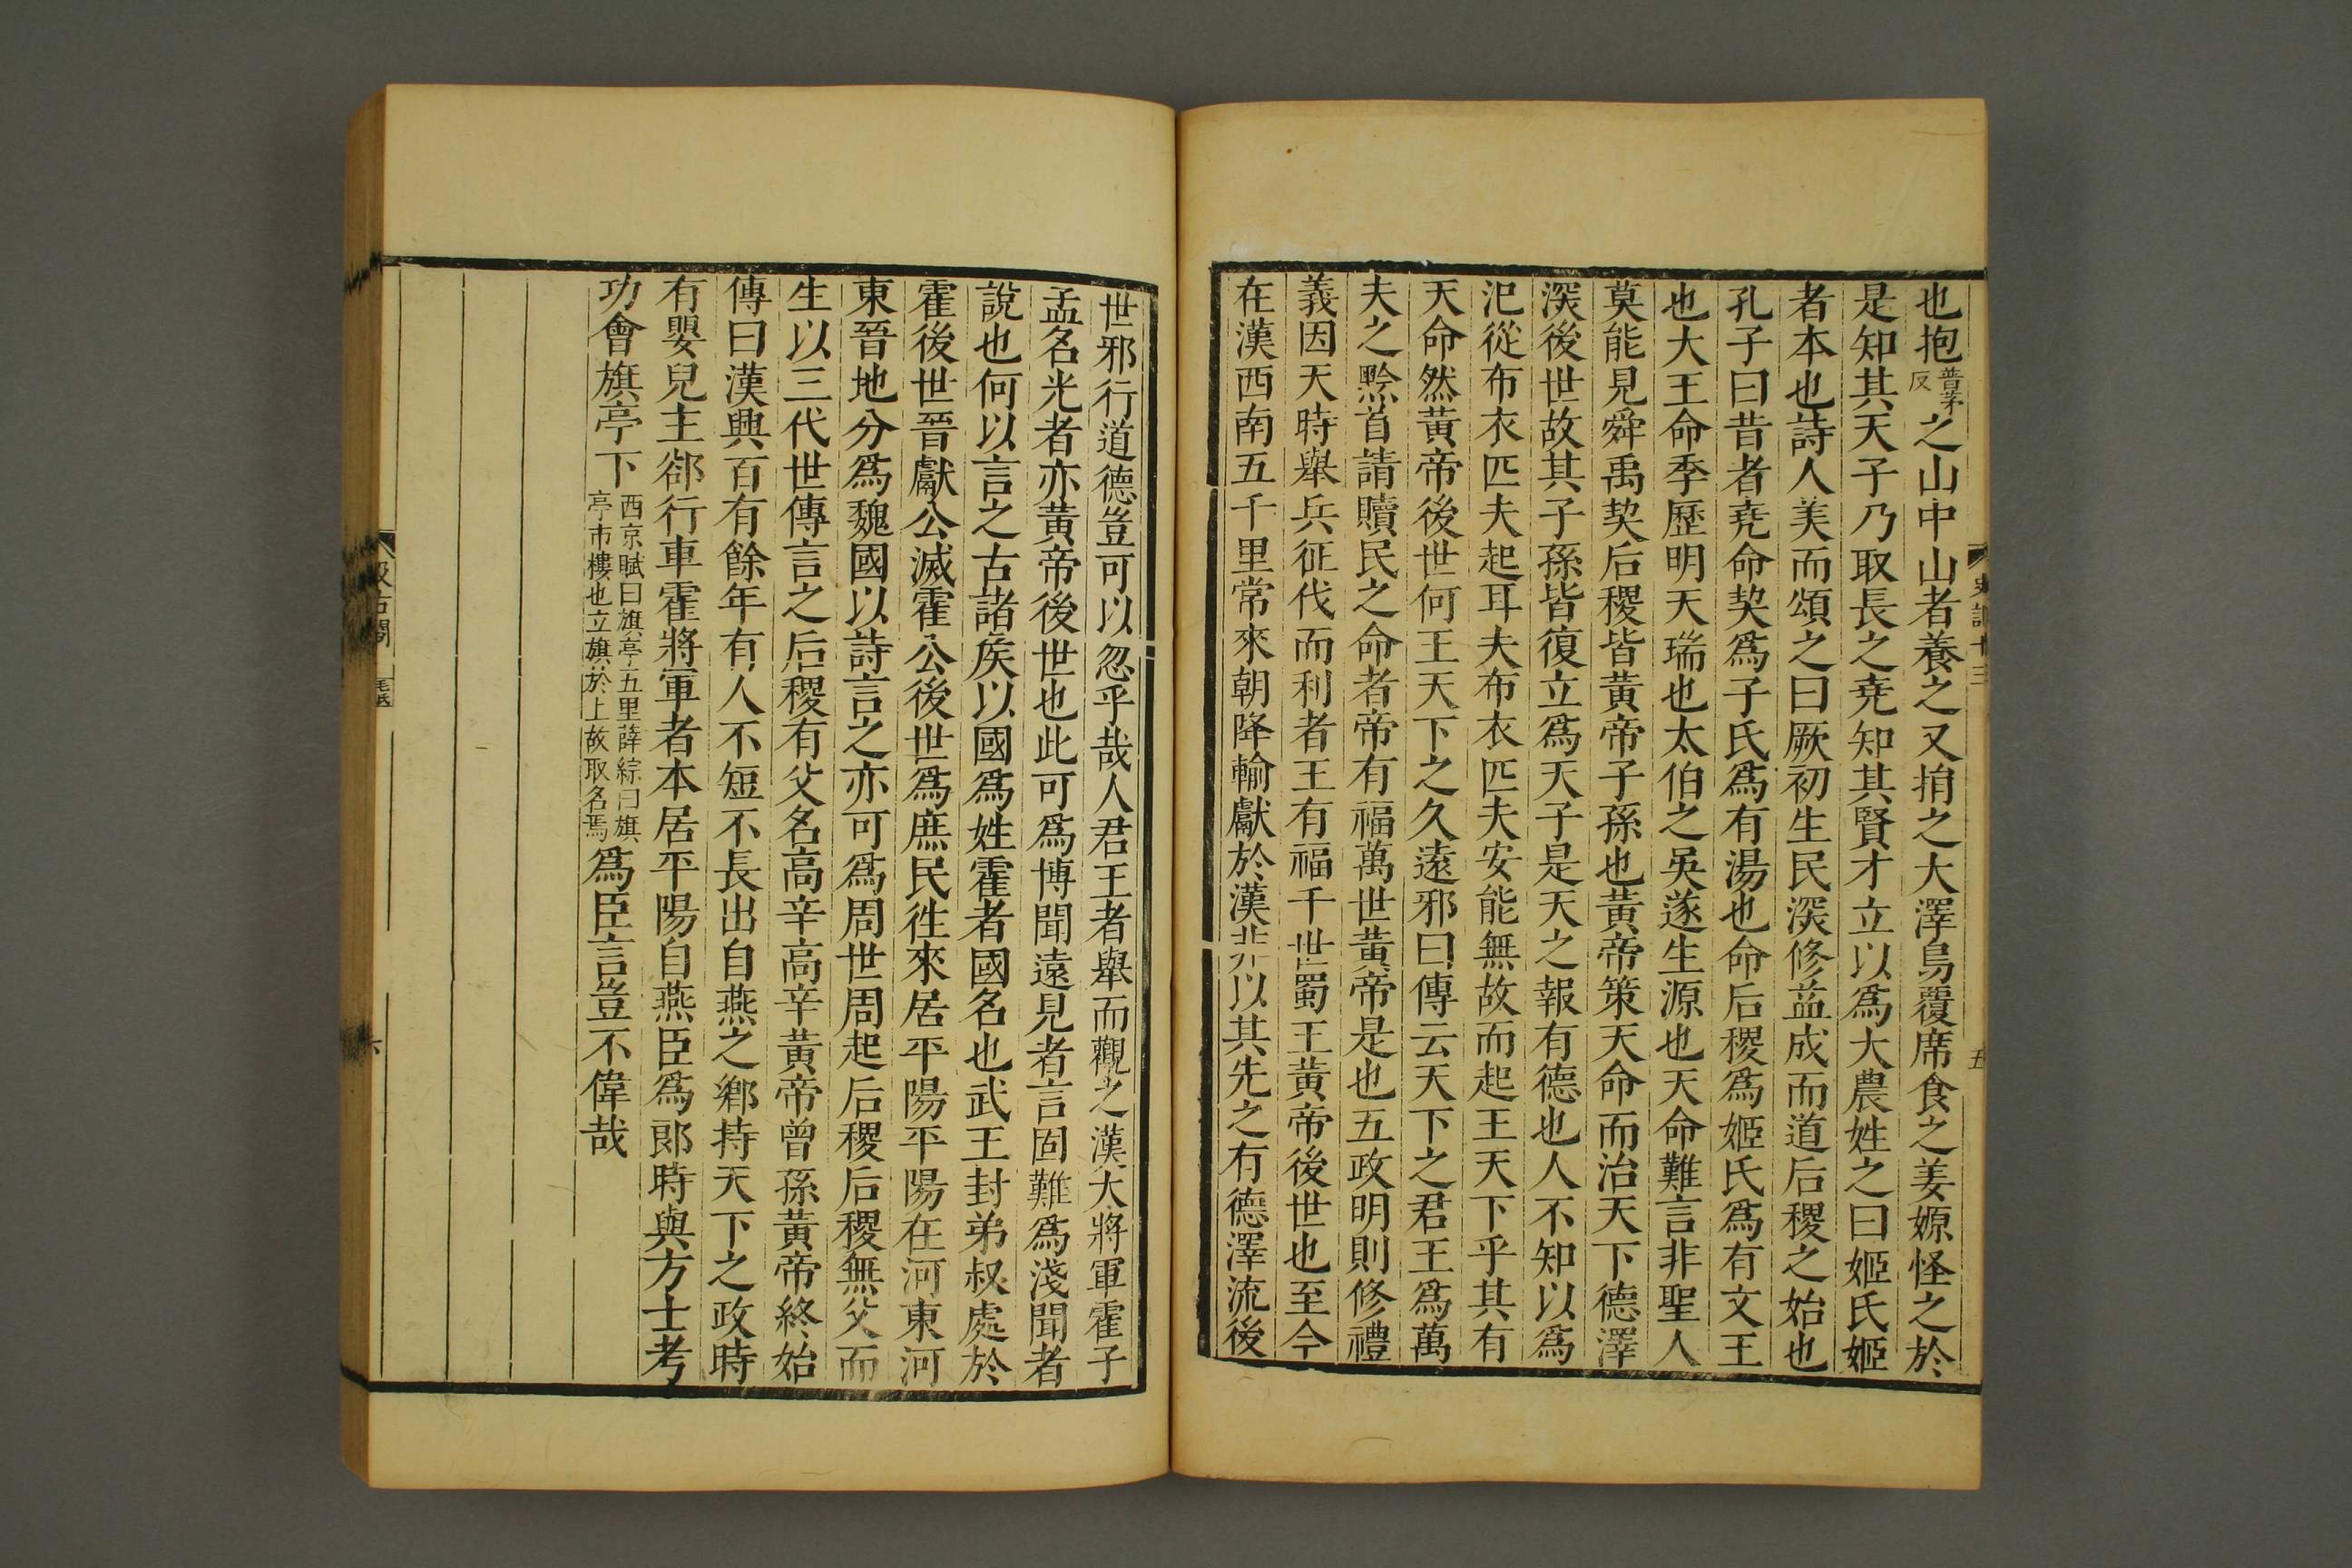 史記十三
五
也抱普茅反之山中山者養之又捐之大澤鳥覆席食之姜嫄怪之於
是知其天子乃取長之堯知其賢才立以爲大農姓之曰姬氏姬
者本也詩人美而頌之曰厥初生民深修益成而道后稷之始也
孔子曰昔者堯命契爲子氏爲有湯也命后稷爲姬氏爲有文王
也大王命季歷明天瑞也太伯之吳遂生源也天命難言非聖人
莫能見舜禹契后稷皆黄帝子孫也黄帝策天命而治天下德澤
深後世故其子孫皆復立爲天子是天之報有德也人不知以爲
汜從布衣匹夫起耳夫布衣匹夫安能無故而起王天下乎其有
天命然黄帝後世何王天下之久遠邪曰傳云天下之君王爲萬
夫之黔首請贖民之命者帝有福萬世黄帝是也五政明則修禮
義因天時舉兵征伐而利者王有福千世蜀王黄帝後世也至今
在漢西南五千里常來朝降輸獻於漢非以其先之有德澤流後
世邪行道德豈可以忽乎哉人君王者舉而觀之漢大將軍霍子
孟名光者亦黄帝後世也此可爲博聞遠見者言固難爲淺聞者
說也何以言之古諸矦以國爲姓霍者國名也武王封弟叔處於
霍後世晉獻公滅霍公後世爲庶民徃來居平陽平陽在河東河
東晉地分爲魏國以詩言之亦可爲周世周起后稷后稷無父而
生以三代世傳言之后稷有父名高辛高辛黄帝曾孫黄帝終始
傳曰漢興百有餘年有人不短不長出自燕之鄉持天下之政時
有嬰兒主郤行車霍將軍者本居平陽自燕臣爲郎時與方士考
功會旗亭下西京賦曰旗亭五里薛綜曰旗亭市樓也立旗於上故取名焉爲臣言豈不偉哉
汲古閣
毛氏
六